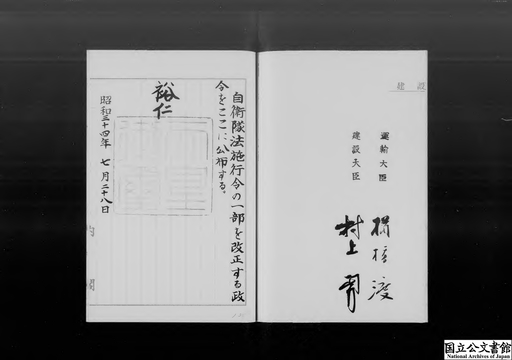 建設
運輸大臣
楢橋渡
建設大臣
村上勇
自衛隊法施行令の一部を改正する政
令をここに公布する。
裕仁
昭和三十四年 七月二十八日
内閣
国立公文書館
National Archives of Japan